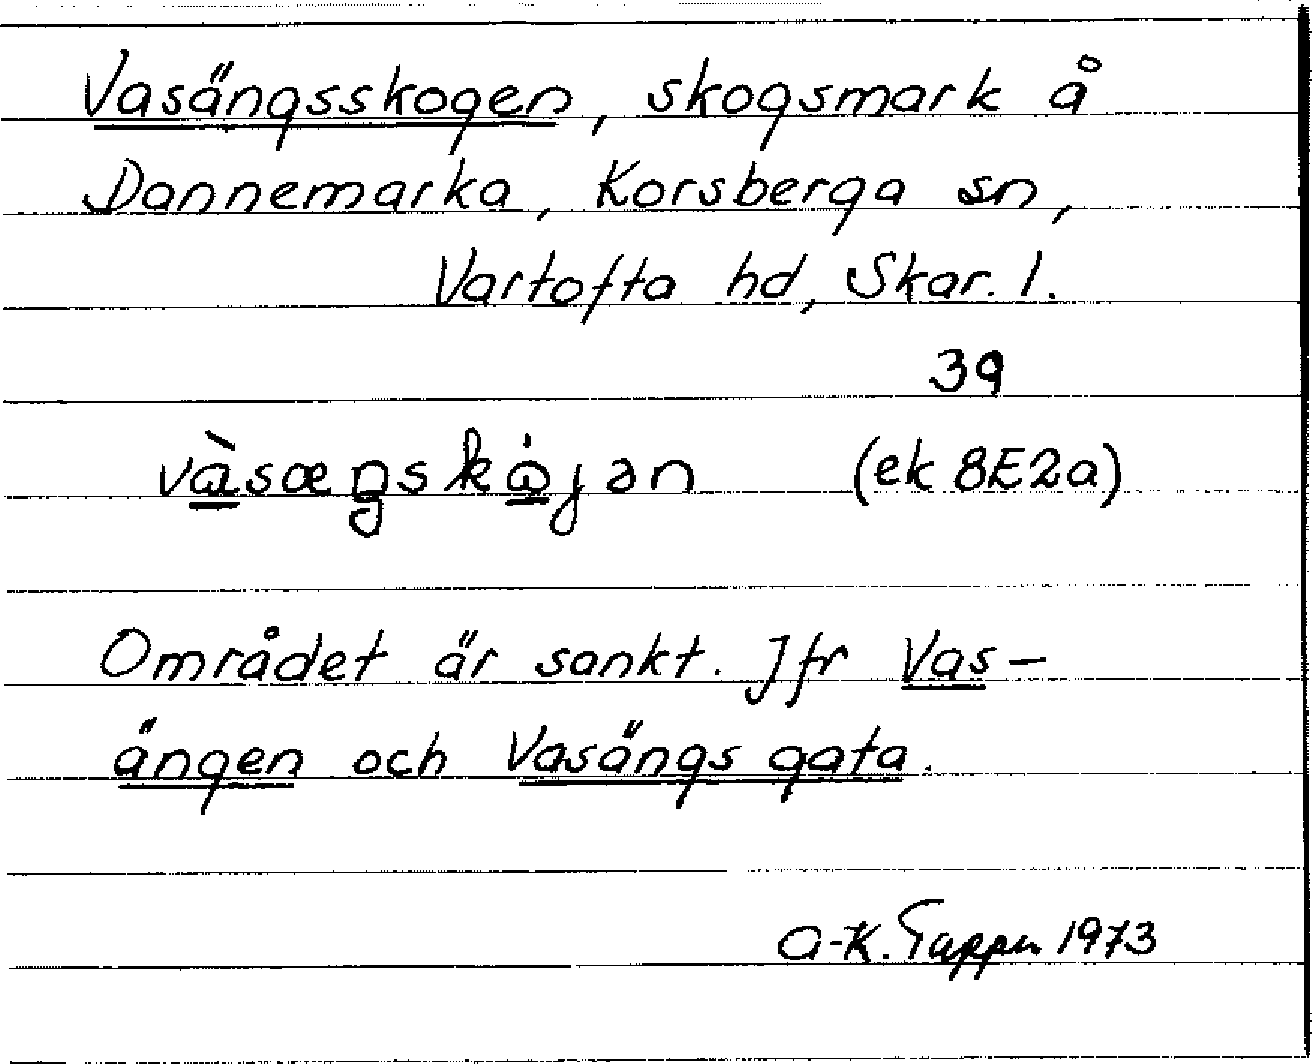 Vasängsskogen, skogsmark å
Dannemarka, Korsberga sn,
Vartofta hd, Skar. l.
39
(ek 8E2a)
Området är sankt. Jfr Vas-
ängen och Vasängs gata.
A-K. 1973